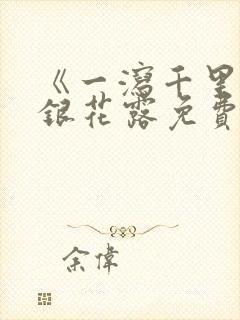 《一瀉千里
銀花露免費
余偉